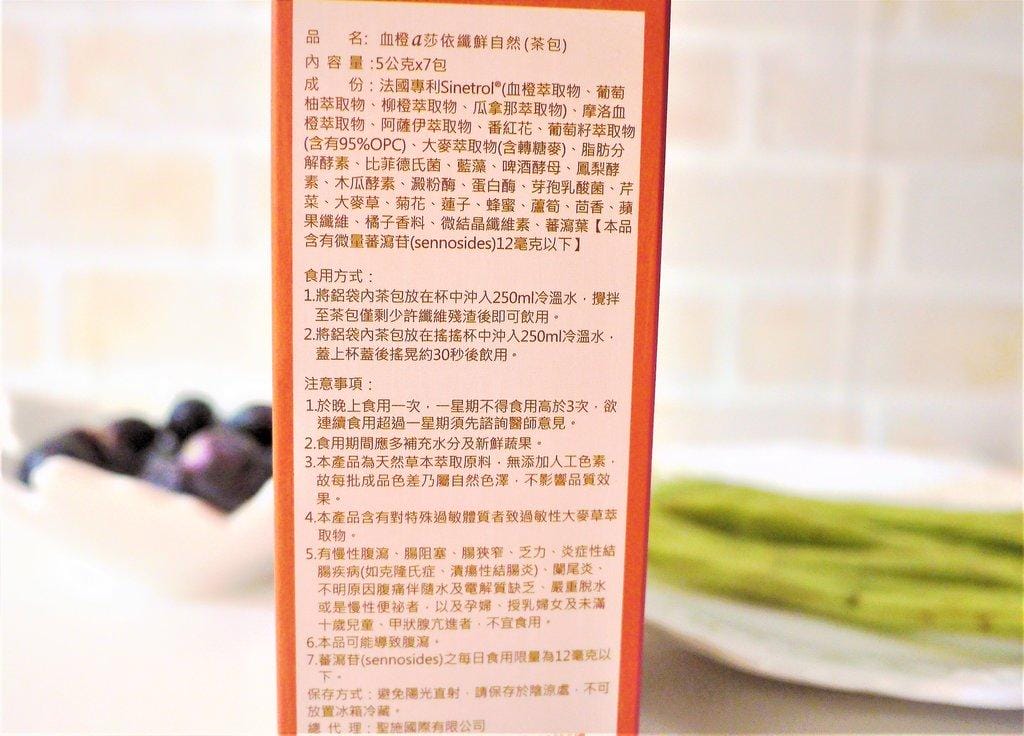 品 名: 血橙a莎依纖鮮自然(茶包)
內容量:5公克x7包
成 份:法國專利Sinetrol®(血橙萃取物、葡萄
柚萃取物、柳橙萃取物、瓜拿那萃取物)、摩洛血
橙萃取物、阿薩伊萃取物、番紅花、葡萄籽萃取物
(含有95%OPC)、大麥萃取物(含轉糖麥)、脂肪分
解酵素、比菲德氏菌、藍藻、啤酒酵母、鳳梨酵
素、木瓜酵素、澱粉酶、蛋白酶、芽孢乳酸菌、芹
菜、大麥草、菊花、蓮子、蜂蜜、蘆筍、茴香、蘋
果纖維、橘子香料、微結晶纖維素、蕃瀉葉【本品
含有微量蕃瀉苷(sennosides)12毫克以下】
食用方式:
1.將鋁袋內茶包放在杯中沖入250ml冷溫水,攪拌
至茶包僅剩少許纖維殘渣後即可飲用。
2.將鋁袋內茶包放在搖搖杯中沖入250ml冷溫水,
蓋上杯蓋後搖晃約30秒後飲用。
注意事項:
1.於晚上食用一次,一星期不得食用高於3次,欲
連續食用超過一星期須先諮詢醫師意見。
2.食用期間應多補充水分及新鮮蔬果。
3.本產品為天然草本萃取原料,無添加人工色素,
故每批成品色差乃屬自然色澤,不影響品質效
果。
4.本產品含有對特殊過敏體質者致過敏性大麥草萃
取物。
5.有慢性腹瀉、腸阻塞、腸狹窄、乏力、炎症性結
腸疾病(如克隆氏症、潰瘍性結腸炎)、闌尾炎、
不明原因腹痛伴隨水及電解質缺乏、嚴重脫水
或是慢性便祕者,以及孕婦、授乳婦女及未滿
十歲兒童、甲狀腺亢進者,不宜食用。
6.本品可能導致腹瀉。
7.蕃瀉苷(sennosides)之每日食用限量為12毫克以
下。
保存方式:避免陽光直射,請保存於陰涼處,不可
放置冰箱冷藏。
總代理:聖施國際有限公司